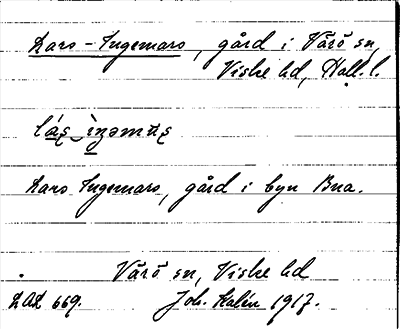 Lars-Ingemars, gård i Värö sn,
Viske hd, Hall. l.
Lars Ingemars, gård i byn Bua.
Värö sn, Viske hd
LAL 669. Joh. Kalén 1917.